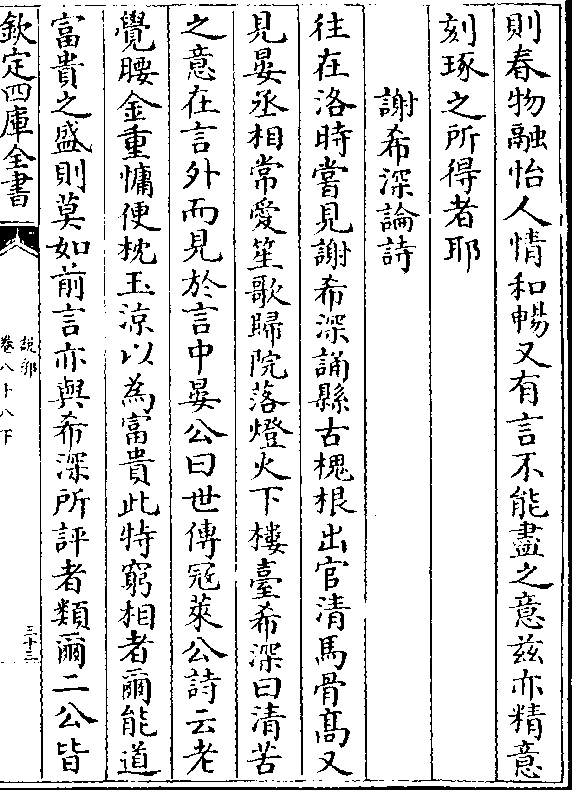 則春物融怡人情和暢又有言不能盡之意兹亦精意
刻琢之所得者耶
謝希深論詩
往在洛時嘗見謝希深誦縣古槐根出官清馬骨髙又
見晏丞相常愛笙歌歸院落燈火下樓臺希深曰清苦
之意在言外而見於言中晏公曰世傳冦萊公詩云老
覺腰金重慵便枕玉涼以為富貴此特窮相者爾能道
富貴之盛則莫如前言亦與希深所評者類爾二公皆
欽定四庫全書
說郛
卷八十八下
三十三